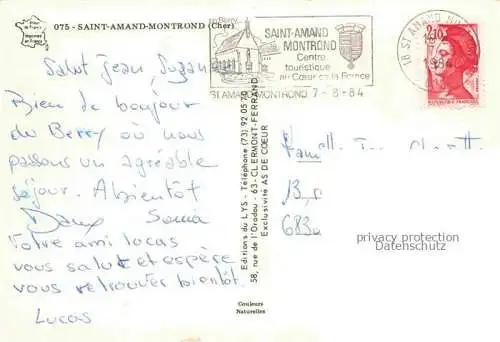 075 - SAINT-AMAND-MONTROND (Cher)
Salut Jean, Suzan
Bien le bonjour
du Berry où nous
passons un agréable
séjour. A bientôt
Sonia
Votre ami lucas
vous salut et espère
vous retrouver bientôt.
Lucas
en Berry
SAINT-AMAND
MONTROND
Centre
touristique
au Cœur de la France
ST AMAND MONTROND 7-8-84
18 ST AMAND
2,10
Editions du LYS - Téléphone (73) 92 05 70
58, rue de l'Oradou - 63-CLERMONT-FERRAND
Exclusivité AS DE COEUR
Couleurs
Naturelles
Famille
privacy protection
Datenschutz